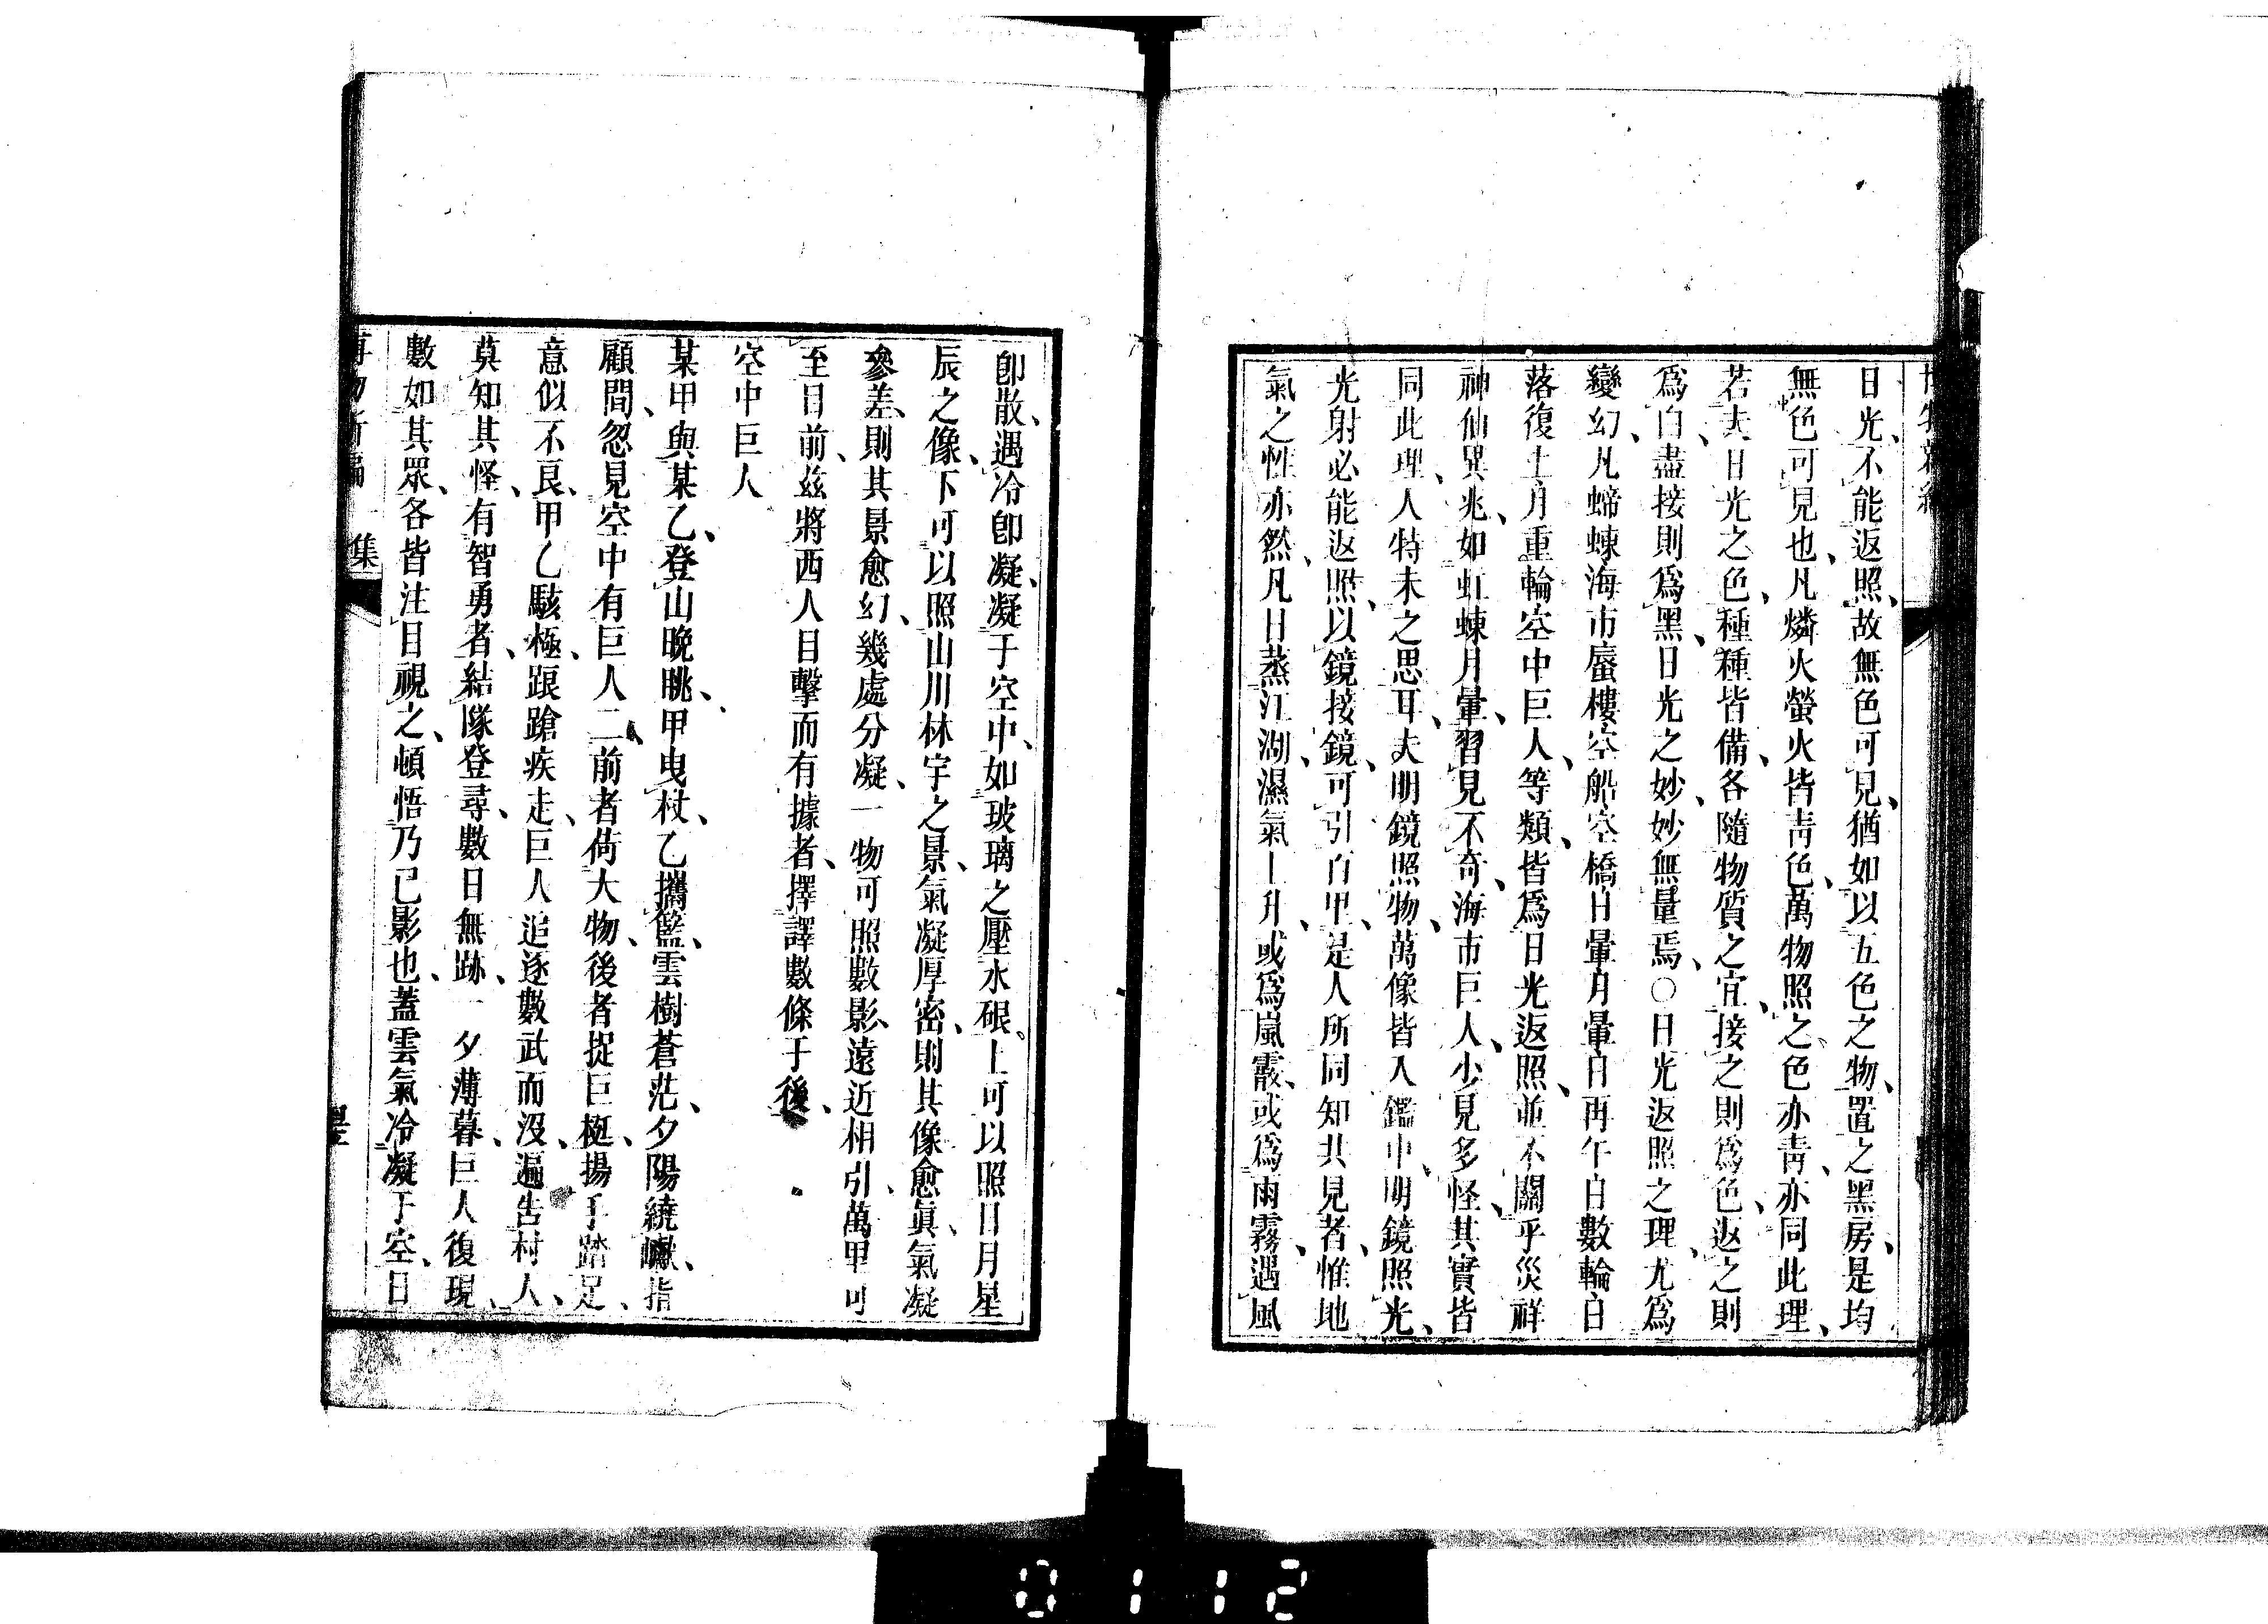 日光、不能返照、故無色可見、猶如以五色之物、置之黑房、是均
無色可見也、凡燐火螢火皆靑色、萬物照之色亦靑、亦同此理、
若夫日光之色、種種皆備、各隨物質之宜、接之則爲色、返之則
爲白、盡接則爲黑、日光之妙、妙無量焉、○日光返照之理、尤爲
變幻、凡螮蝀海市蜃樓空船空橋日暈月暈日再午日數輪日
落復上月重輪空中巨人、等類、皆爲日光返照、並不關乎災祥
神仙異兆、如虹蝀月暈、習見不奇、海市巨人、少見多怪、其實皆
同此理、人特未之思耳、夫明鏡照物、萬像皆入鑑中、明鏡照光、
光射必能返照、以鏡接鏡、可引百里、是人所同知共見者、惟地
氣之性亦然、凡日蒸江湖、濕氣上升、或爲嵐霞、或爲雨霧、遇風
卽散、遇冷卽凝、凝于空中、如玻璃之壓水硍、上可以照日月星
辰之像、下可以照山川林宇之景、氣凝厚密、則其像愈眞、氣凝
參差、則其景愈幻、幾處分凝、一物可照數影、遠近相引、萬里可
至目前、玆將西人目擊而有據者、擇譯數條于後、
空中巨人
某甲與某乙、登山晚眺、甲曳杖、乙攜籃、雲樹蒼茫、夕陽繞巘、指
顧間、忽見空中有巨人二、前者荷大物、後者捉巨梃、揚手踏足、
意似不良、甲乙駭極、踉蹌疾走、巨人追逐數武而沒、遍告村人、
莫知其怪、有智勇者、結隊登尋、數日無跡、一夕薄暮、巨人復現、
數如其眾、各皆注目視之、頓悟乃已影也、蓋雲氣冷凝于空、日
集
0112